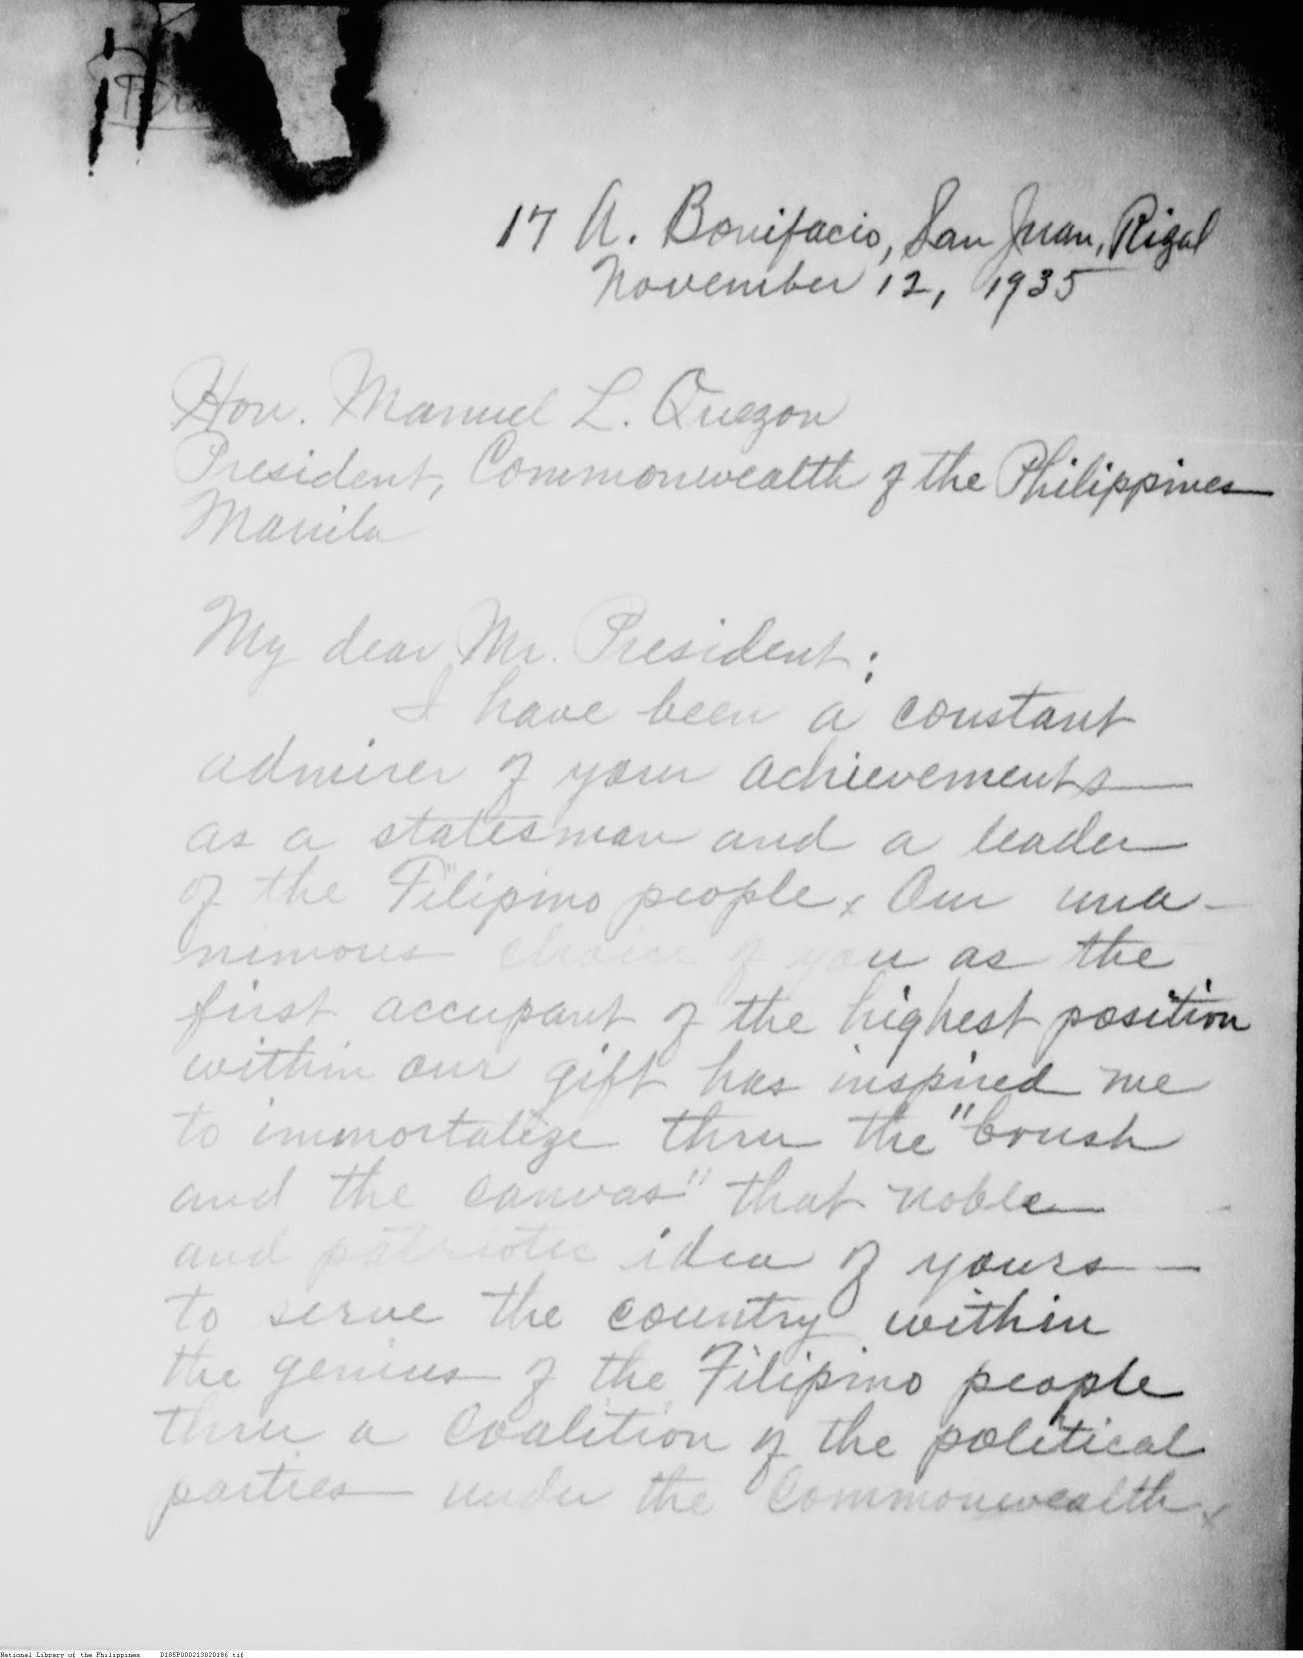 17 A. Bonifacio, San Juan, Rizal
November 12, 1935
Hon. Manuel L. Quezon
President, Commonwealth of the Philippines
Manila
My dear Mr. President:
I have been a constant
admirer of your achievements
as a statesman and a leader
of the Filipino people. Our una-
nimous choice of you as the
first occupant of the highest position
within our gift has inspired me
to immortalize thru the "brush
and the canvas" that noble
and patriotic idea of yours
to serve the country within
the genius of the Filipino people
thru a Coalition of the political
parties under the Commonwealth.
National Library of the Philippines D185P000213020186.tif